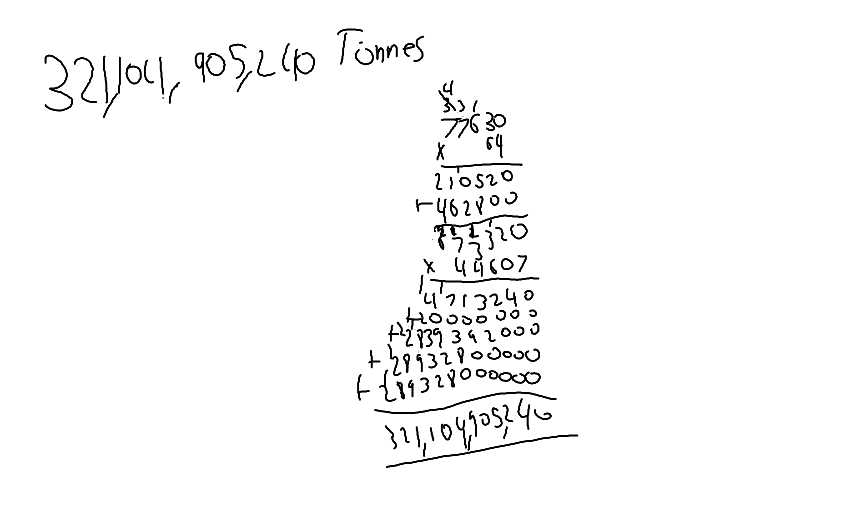 321,104,905,240 Tonnes
4
3 3 1
77630
x 64
210520
+462800
673320
x 44607
4713240
+20000000
+2839392000
+28932800000
+289328000000
321,104,905,240